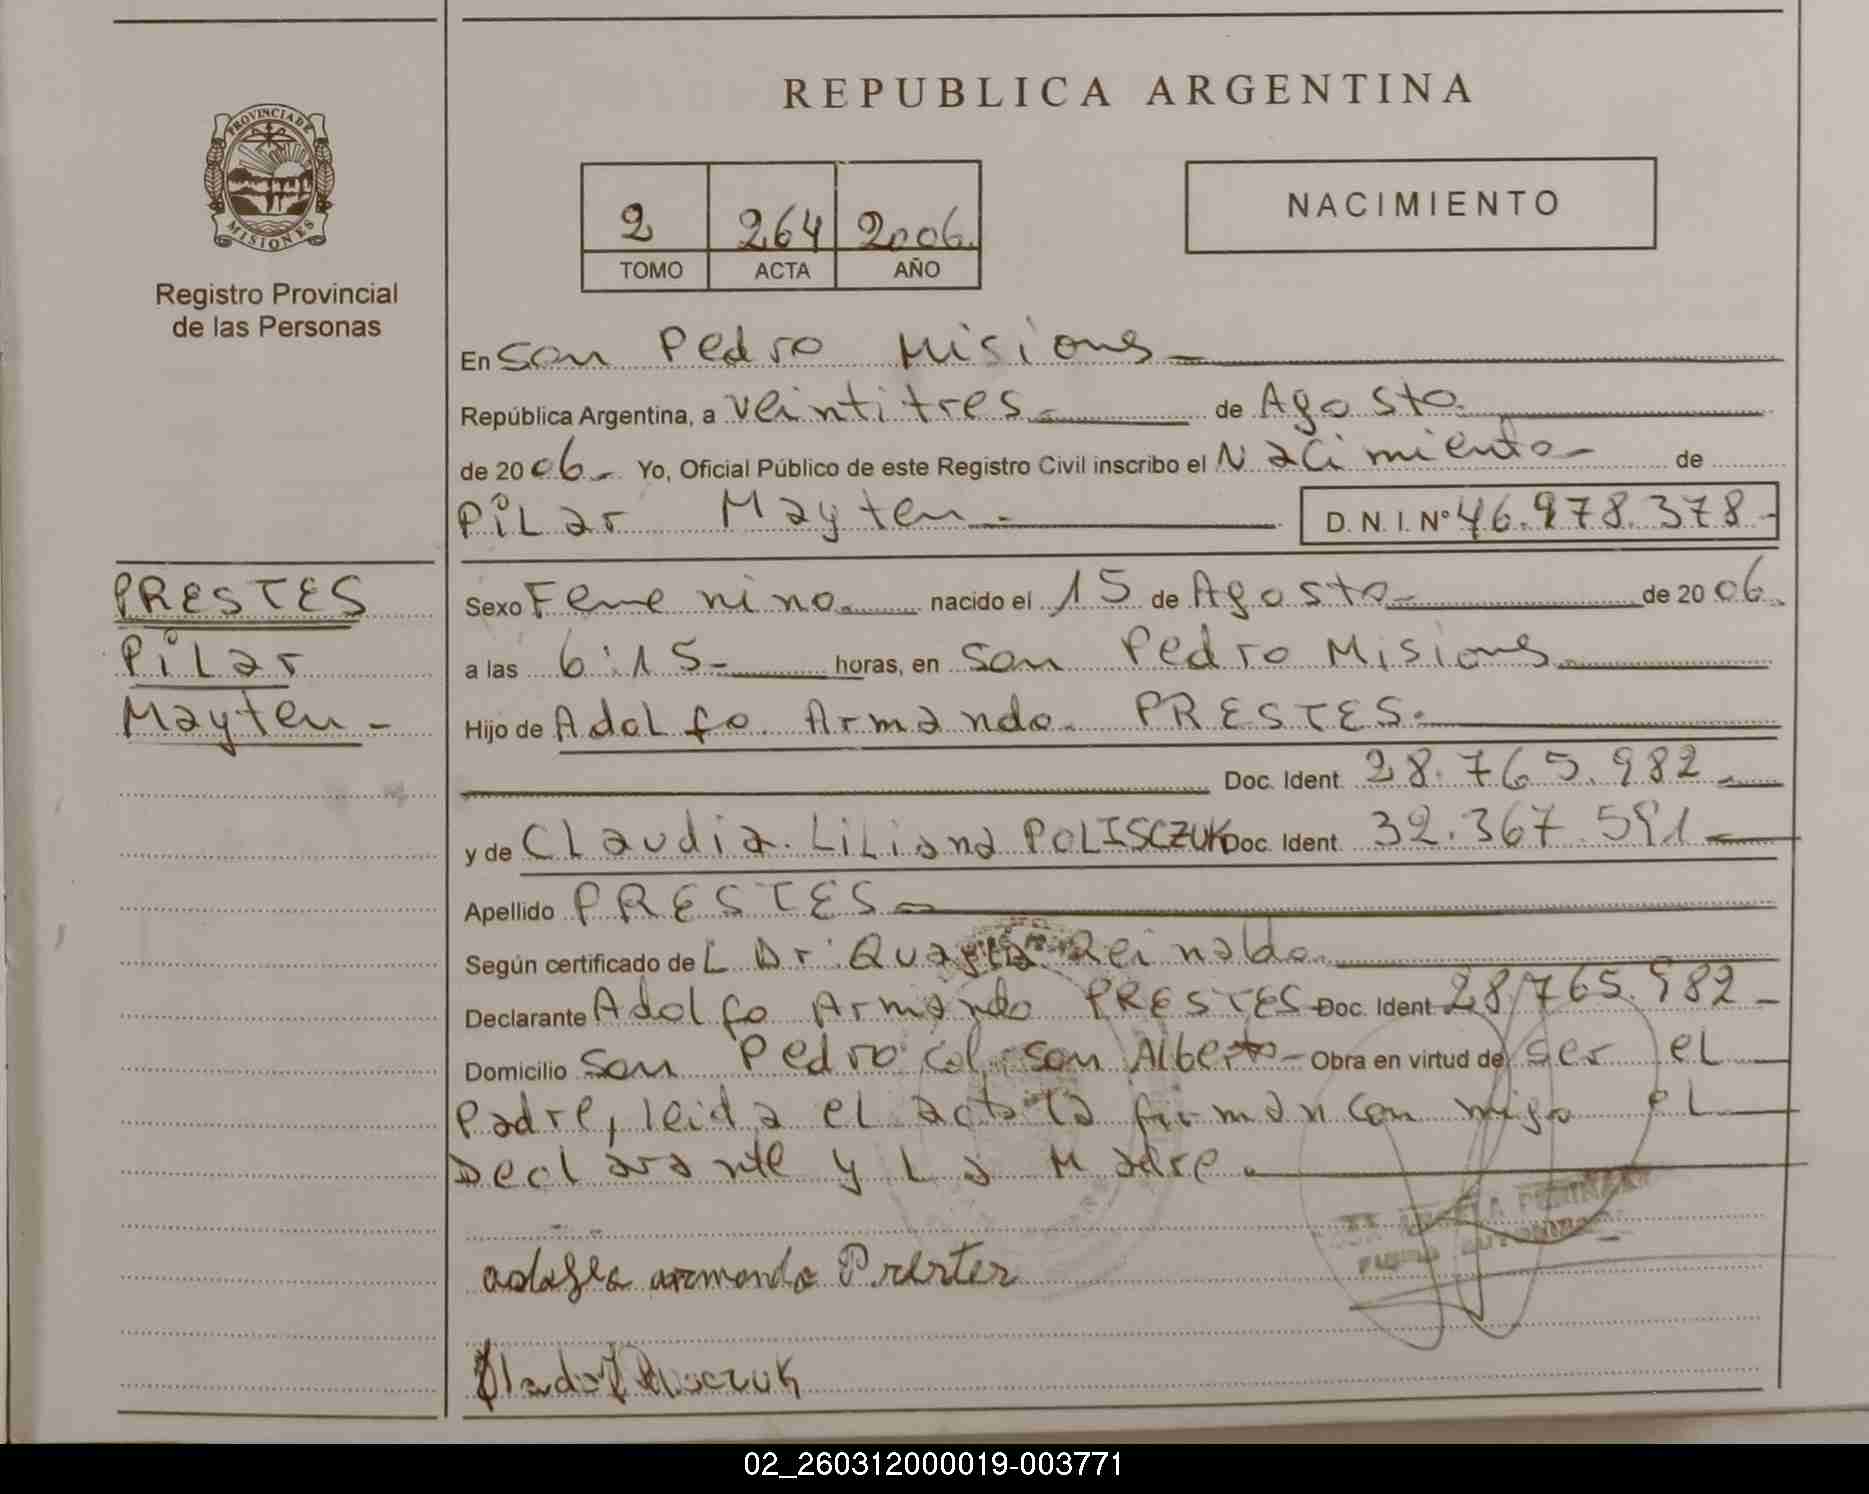 REPUBLICA ARGENTINA
PROVINCIA DE
MISIONES
Registro Provincial
de las Personas
2 264 2006.
TOMO ACTA AÑO
NACIMIENTO
En San Pedro Misiones
República Argentina, a veintitres de Agosto
de 2006 Yo, Oficial Público de este Registro Civil inscribo el Nacimiento de
Pilar Mayten D.N.I. Nº 46.978.378
PRESTES
Pilar
Mayten
Sexo Femenino nacido el 15 de Agosto de 2006.
a las 6:15 horas, en San Pedro Misiones
Hijo de Adolfo Armando PRESTES.
Doc. Ident. 28.765.982
y de Claudia Liliana POLISCZUK Doc. Ident. 32.367.591
Apellido PRESTES
Según certificado de L Dr. Reinaldo
Declarante Adolfo Armando PRESTES Doc. Ident 28.765.982
Domicilio San Pedro Col. San Alberto Obra en virtud de ser el
Padre, leida el acta la firman con migo el
Declarante y La Madre.
adolfo armando Prestes
02_260312000019-003771